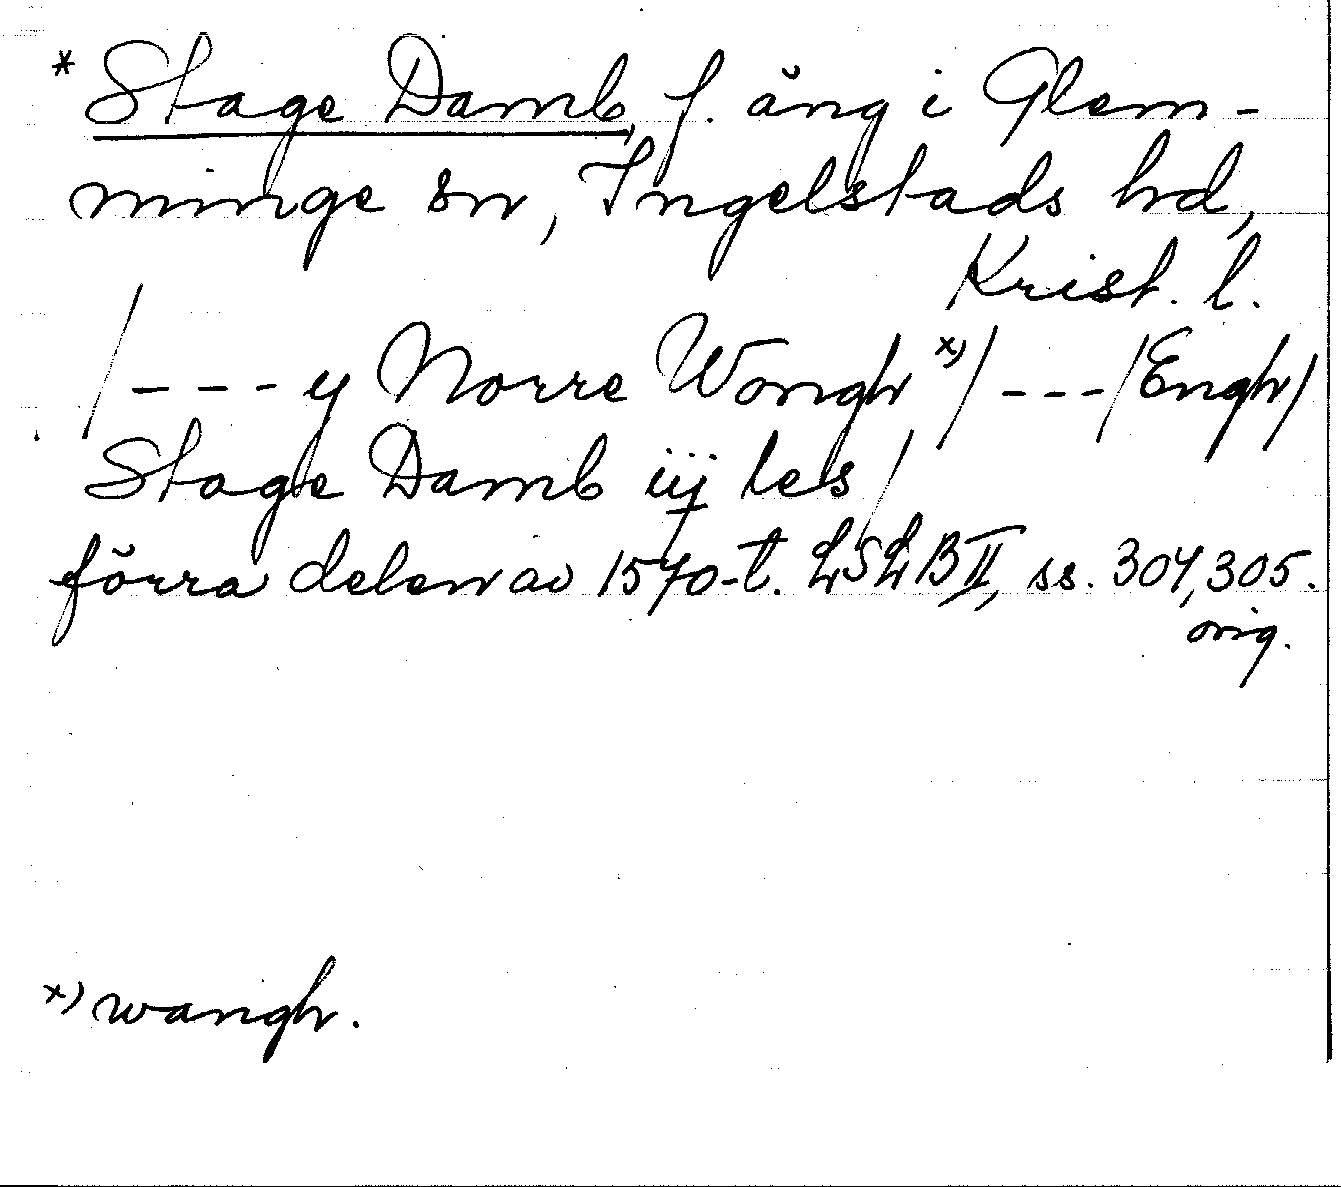 * Stage Damb, f. äng i Glem-
minge sn, Ingelstads hd,
Krist. l.
/--- y Norre Wongh x)/ ---/Engh/
Stage Damb iij les/
förra delen av 1570-t. LSLB II, ss. 304, 305.
orig.
x) wangh.